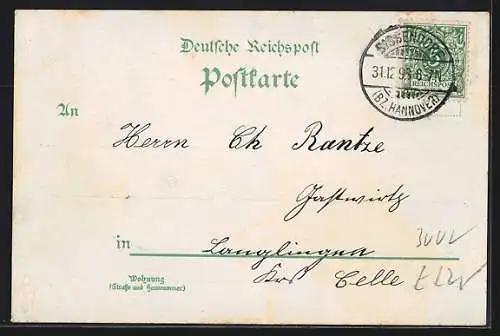 Deutsche Reichspost
Postkarte
31.12.9
6-7N
(BZ. HANNOVER)
REICHSPOST
An
Herrn Ch Rantze
Gastwirth
in Langlingen
Krs Celle
Wohnung
(Straße und Hausnummer)